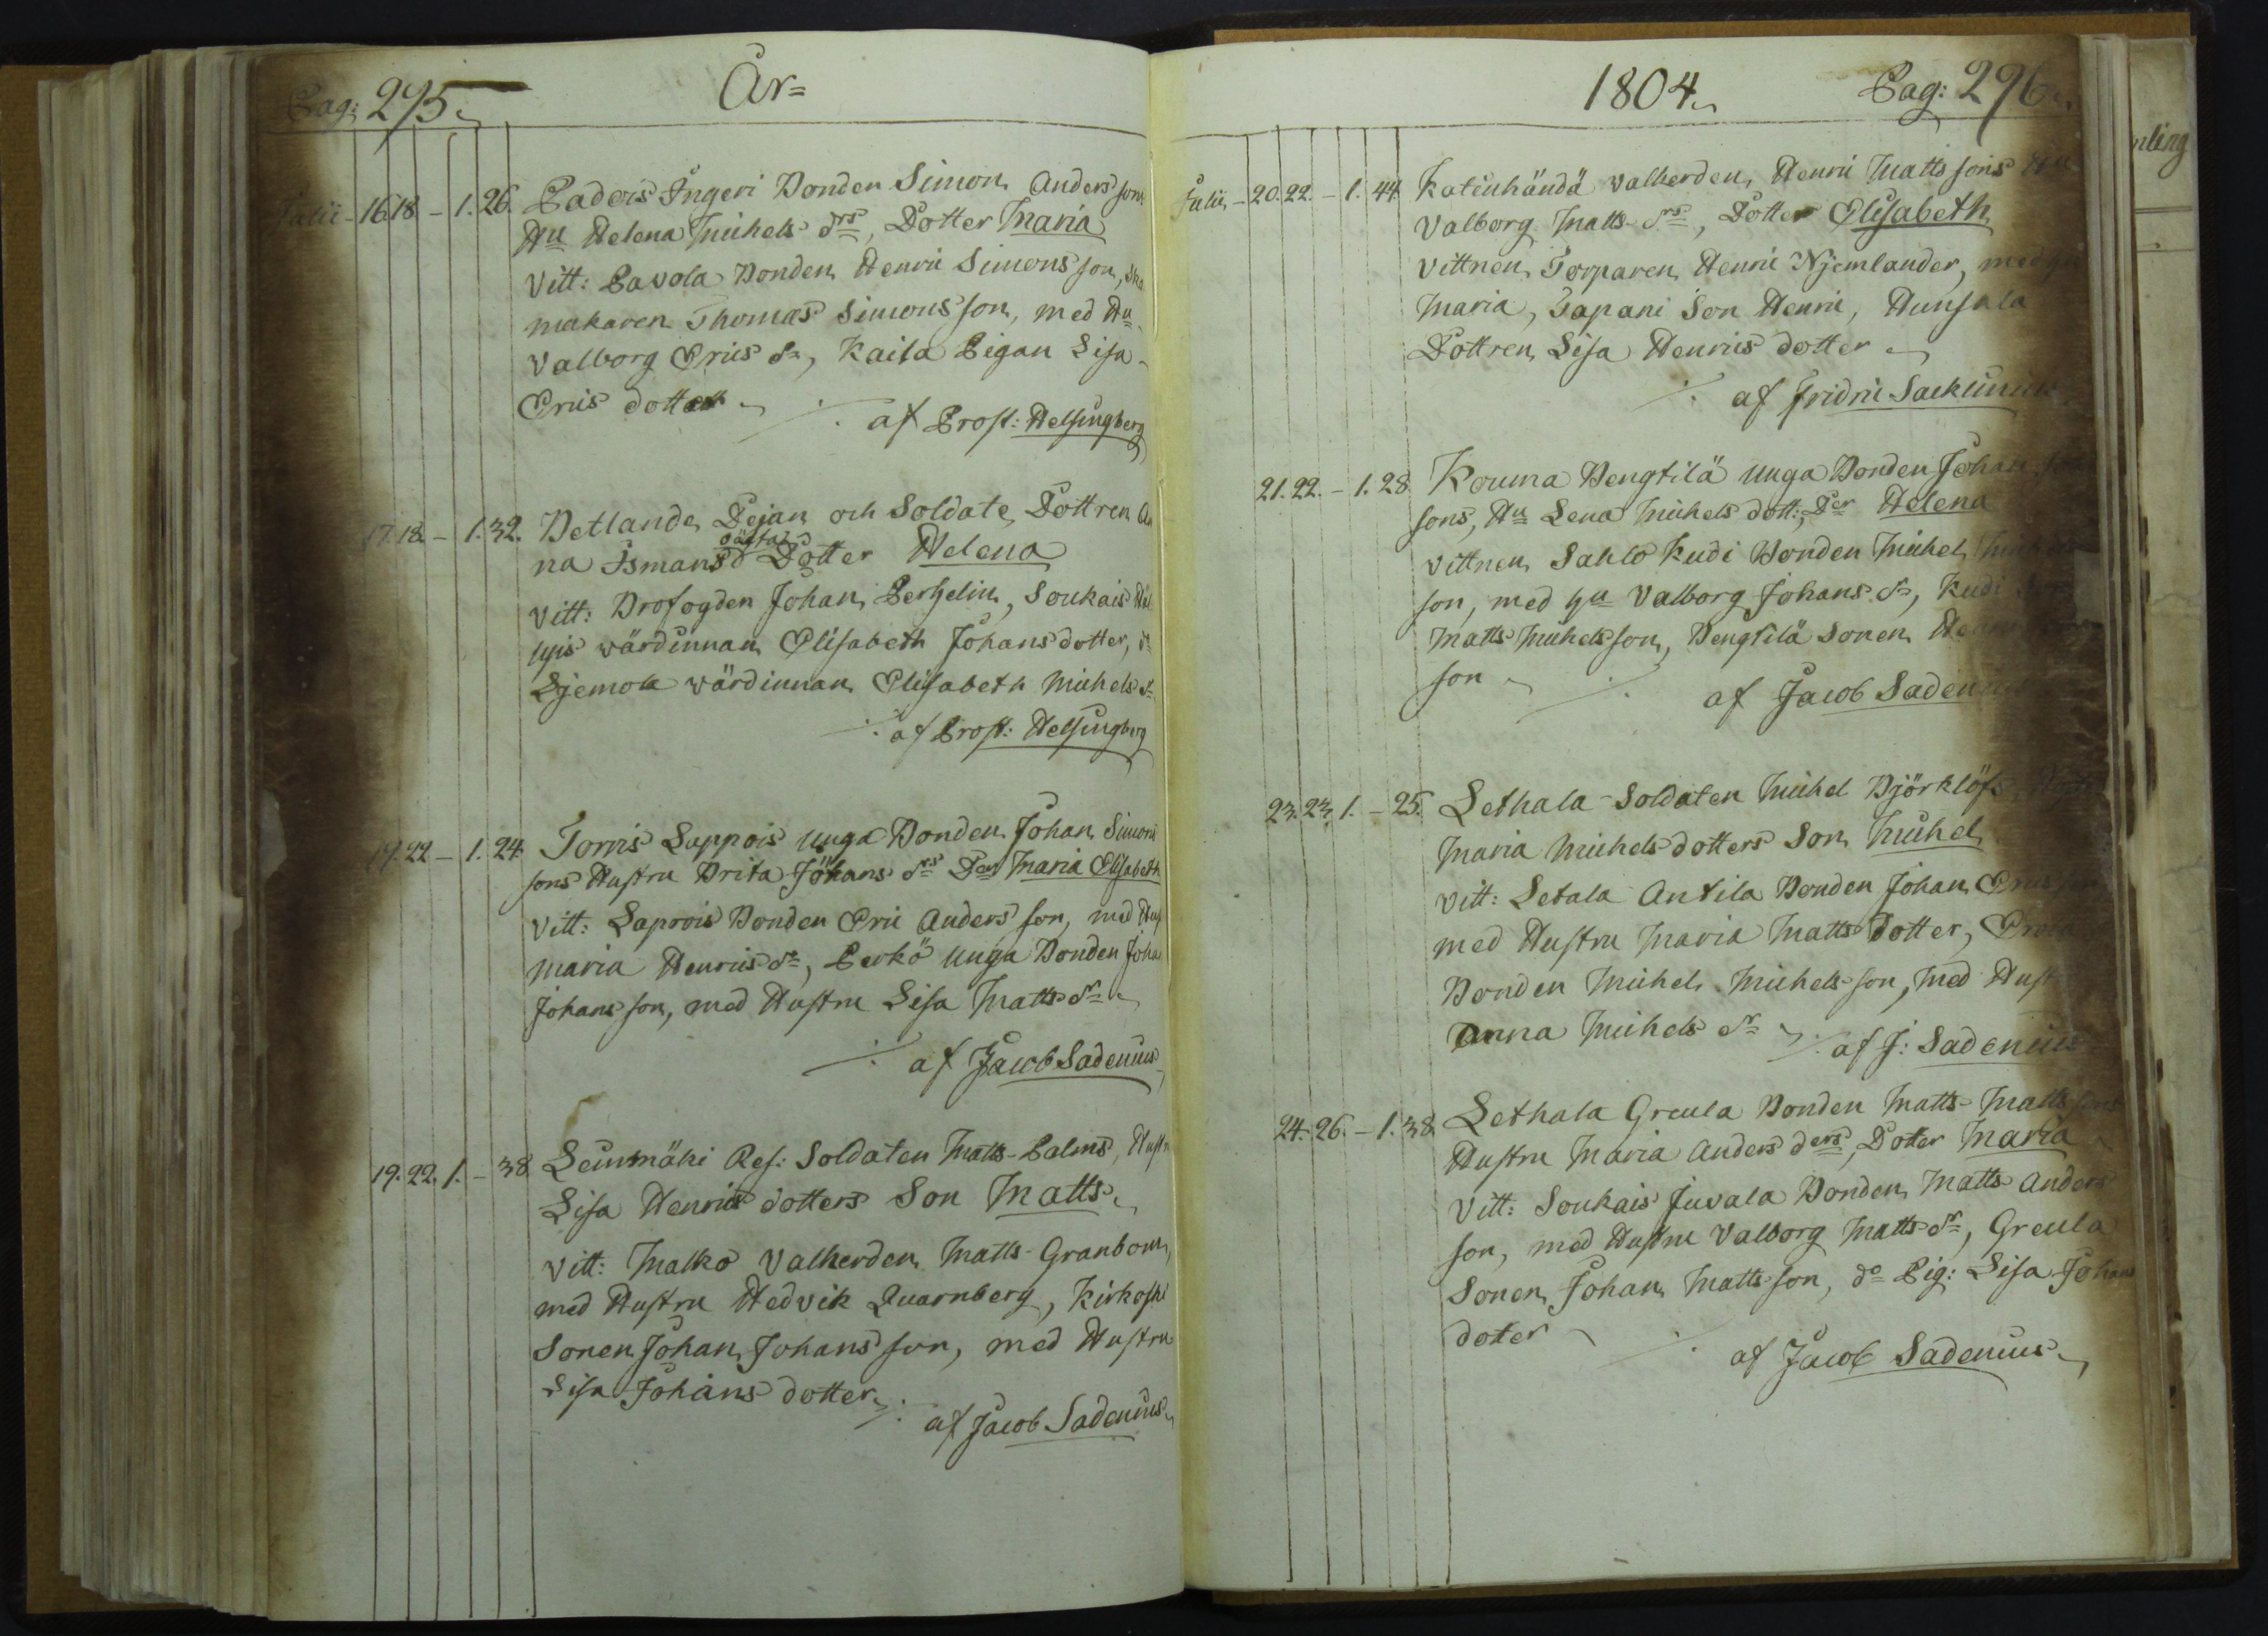 Pag: 295.
År=
Julii - 16. 18 - 1. 26. Paders Ingeri Bonden Simon Anders sons
Hu Helena Michels drs, Dotter Maria
Vitt: Pavola Bonden Henric Simons son, Sko
makaren Thomas Simons son, med Hu
Valborg Erics dr, Kaila Pigan Lisa
Erics dotter ./. af Prost: Helsingberg
17. 18 - 1. 32. Betlande Pejan och Soldate Dottren An
oägta
na Ismans d Dotter Helena
Vitt: Brofogden Johan Bergelin, Soukais
wärdinnan Elisabeth Johans dotter, do
Ljemola wärdinnan Elisabeth Michels dr
./. af Prost: Helsingberg
19. 22 - 1. 24. Torris Lappois unga Bonden Johan Simons
sons Hustru Brita Johans drs Der Maria Elisabeth
Vitt: Laprois Bonden Eric Anders son, med Hust
Maria Henrics dr, Perkö unga Bonden Joha
Johans son, med Hustru Lisa Matts dr
./. af Jacob Sadenius
19. 22. 1. - 38. Leinmäki Res: Soldaten Matts Palms, Hustr
Lisa Henrics dotters Son Matts.
Vitt: Malko Valherden Matts Granbom,
med Hustru Hedvik Quarnberg, Kirkoski
Sonen Johan Johans son, med Hustru
Lisa Johans dotter ./. af Jacob Sadenius
1804.
Pag: 296.
Julii - 20. 22. - 1. 44. Katinhändä valherden Henric Matts sons Hu
Valborg Matts drs, Dotter Elisabeth
Vittnen Torparen Henric Njemlander, med hu
Maria, Tapani Son Henric, Hunsala
Dottren Lisa Henrics dotter
./. af Fridric Sacklinius
21. 22. - 1. 28 Kouma Bengtilä unga Bonden Johan
sons, Hu Lena Michels dott:, Der Helena
Vittnen Sahlo Kudi Bonden Michel Michels
son, med hu Valborg Johans dr, Kudi
Matts Michels son, Bengtilä Sonen
son ./. af Jacob Sadenius
23. 23. 1. - 25. Lethala Soldaten Michel Björklöfs
Maria Michels dotters Son Michel
Vitt: Letala Antila Bonden Johan Erics son
med Hustru Maria Matts Dotter,
Bonden Michel Michels son, med Hust
Anna Michels dr ./. af J: Sadenius
24. 26. - 1. 38. Lethala Greula Bonden Matts Matts sons
Hustru Maria Anders ders, Doter Maria
Vitt: Soukais Juvala Bonden Matts Anders
son, med Hustru Valborg Matts dr, Greula
Sonen Johan Matts son, do Pig: Lisa Johans
doter ./. af Jacob Sadenius
mling